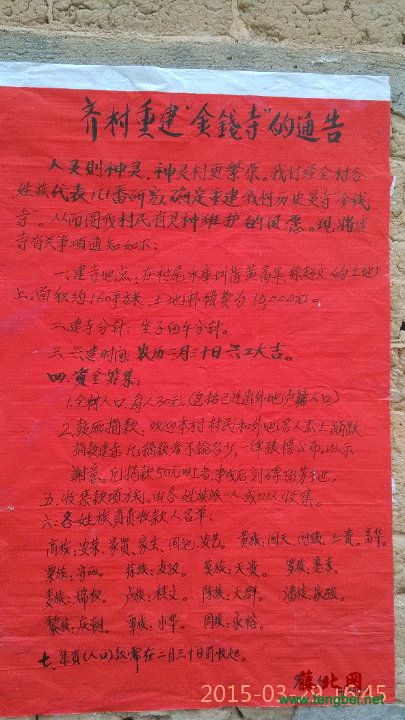 齐村重建“金錢寺”的通告
人灵则神灵,神灵村更繁荣。我村经全村各
姓族代表 番研究,确定重建我村历史灵寺“金钱
寺”。从而圆我村民有灵神维护的风愿。现将建
寺有关事项通知如下:
一.建寺地点:在村尾水 黄高华、徐超文的土地
上。面积约160平方米,土地补偿费为15,000元。
二.建寺分针:坐子向午分针。
三.兴建时间:农历二月三十日兴工大吉。
四.資金筹集:
1.全村人口,每人30元,(包括已迁出外地户籍人口)
2.鼓励捐款,欢迎本村村民和外地名人志士踊跃
捐款建寺,凡捐款者不論多少,一律張榜公布,以示
謝意。凡捐款50元以上者,事成后刻碑留芳
五.收集款项方 ,由各姓族派一人或以 收集。
六.各姓族負责收款人名单:
高族:安荣、家贤、家生、国 、安艺。 黄族:国天、国 、仁贵、高华。
梁族:守丽。 徐族:支汉。 莫族:天 。 男族:
麦族:瑞 。 卢族:桂文。 陈族:天群。 潘族:永
黎族:庆 。 覃族:小华。 周族:永榕。
七.集资(人口)款需在二月三十日前收起。
2015-03-29 16:45
藤北网
www.tengbei.net